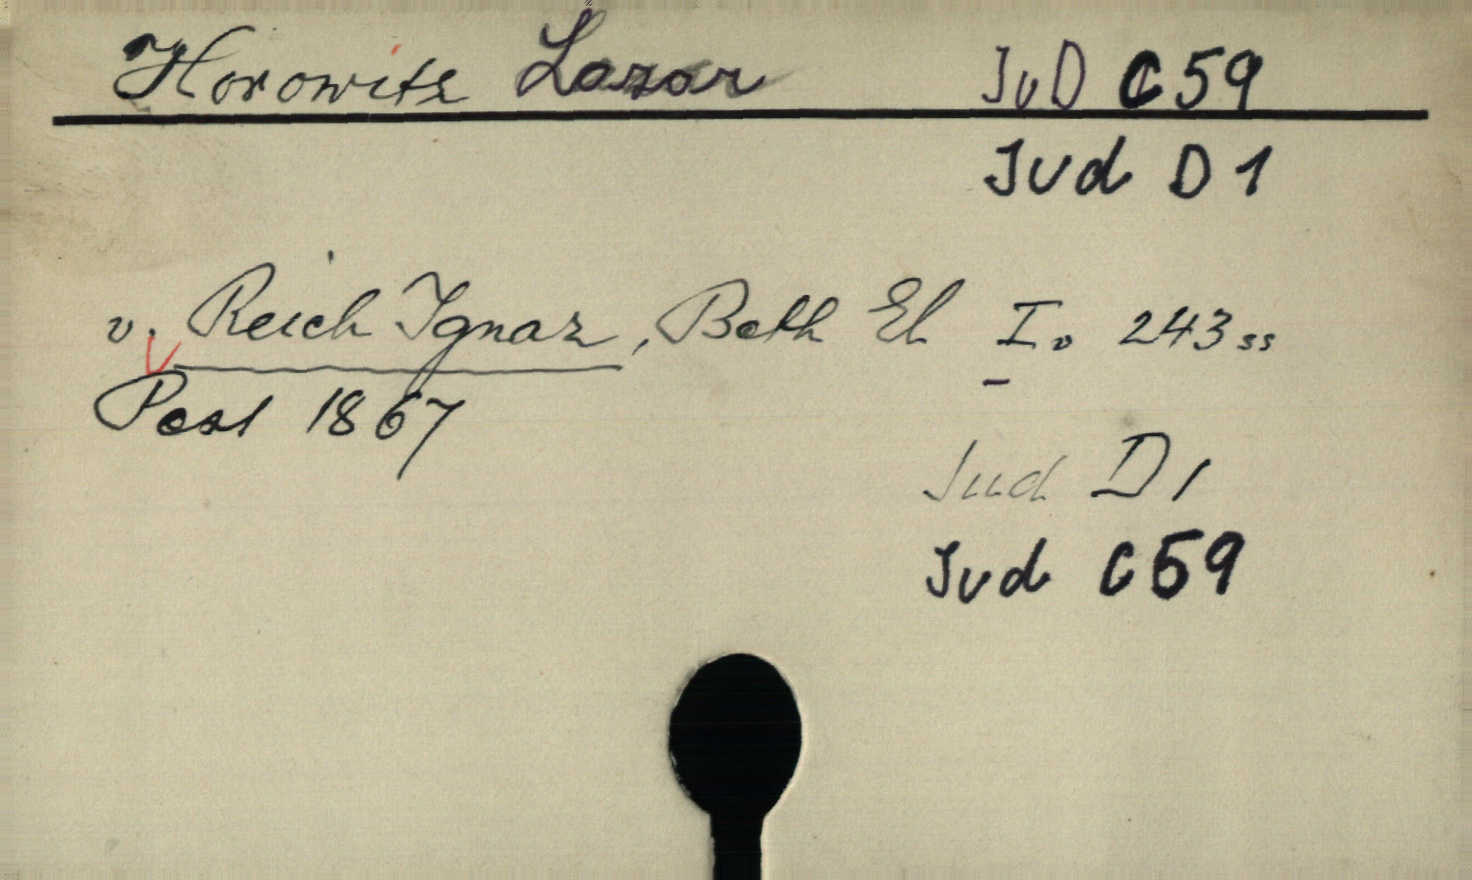 Horowitz Lazar JuD C59
Jud D1
v. Reich Ignaz, Beth El I. 243 ss
Pest 1867
Jud D1
Jud C59